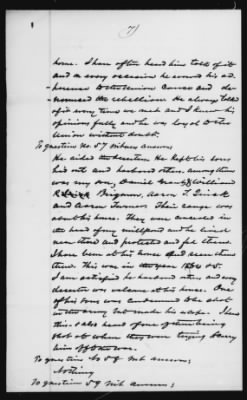 7)
home. I have often heard him talk of it
and on every occasion he avowed his ad-
herence to the Union Cause and de-
nounced the rebellion. He always talked
of it every time we met and I knew his
opinions fully and he was loyal to the
Union without doubt.
To question No 57 witness answers
He aided the deserters. He kept his sons
hid out and husband others. among them
was my son, Daniel William
Brigman, Aaron
and Aaron Turner. Their range was
about his house. They were concealed in
the head of my millpond and he lived
near there and protected and fed them.
I have been at his house and seen them
there. This was in the year 1864 & 5.
I am satisfied he and any
deserter was welcome at his house. One
of his sons was condemned to be shot
in the army but made his escape. I know
this. I also heard of one of them being
shot at when they were trying to carry
him off to the war.
To question No 58 wit answers;
Nothing
To question 59 wit answers;